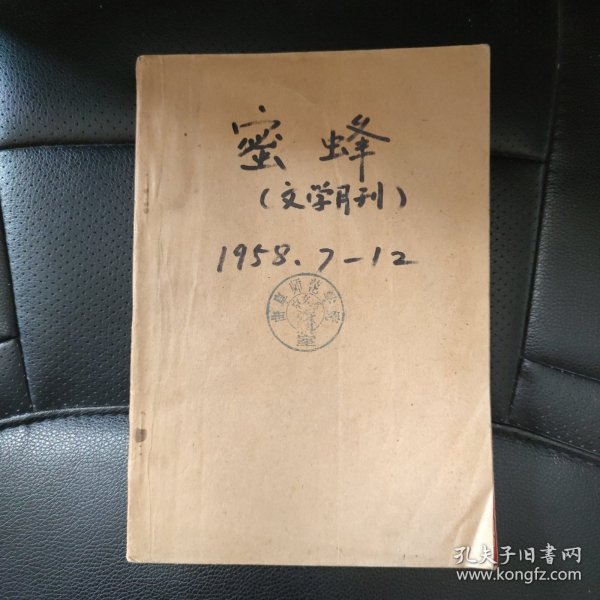 蜜蜂
（文学月刊）
1958.7－12
孔夫子旧书网
www.kongfz.com